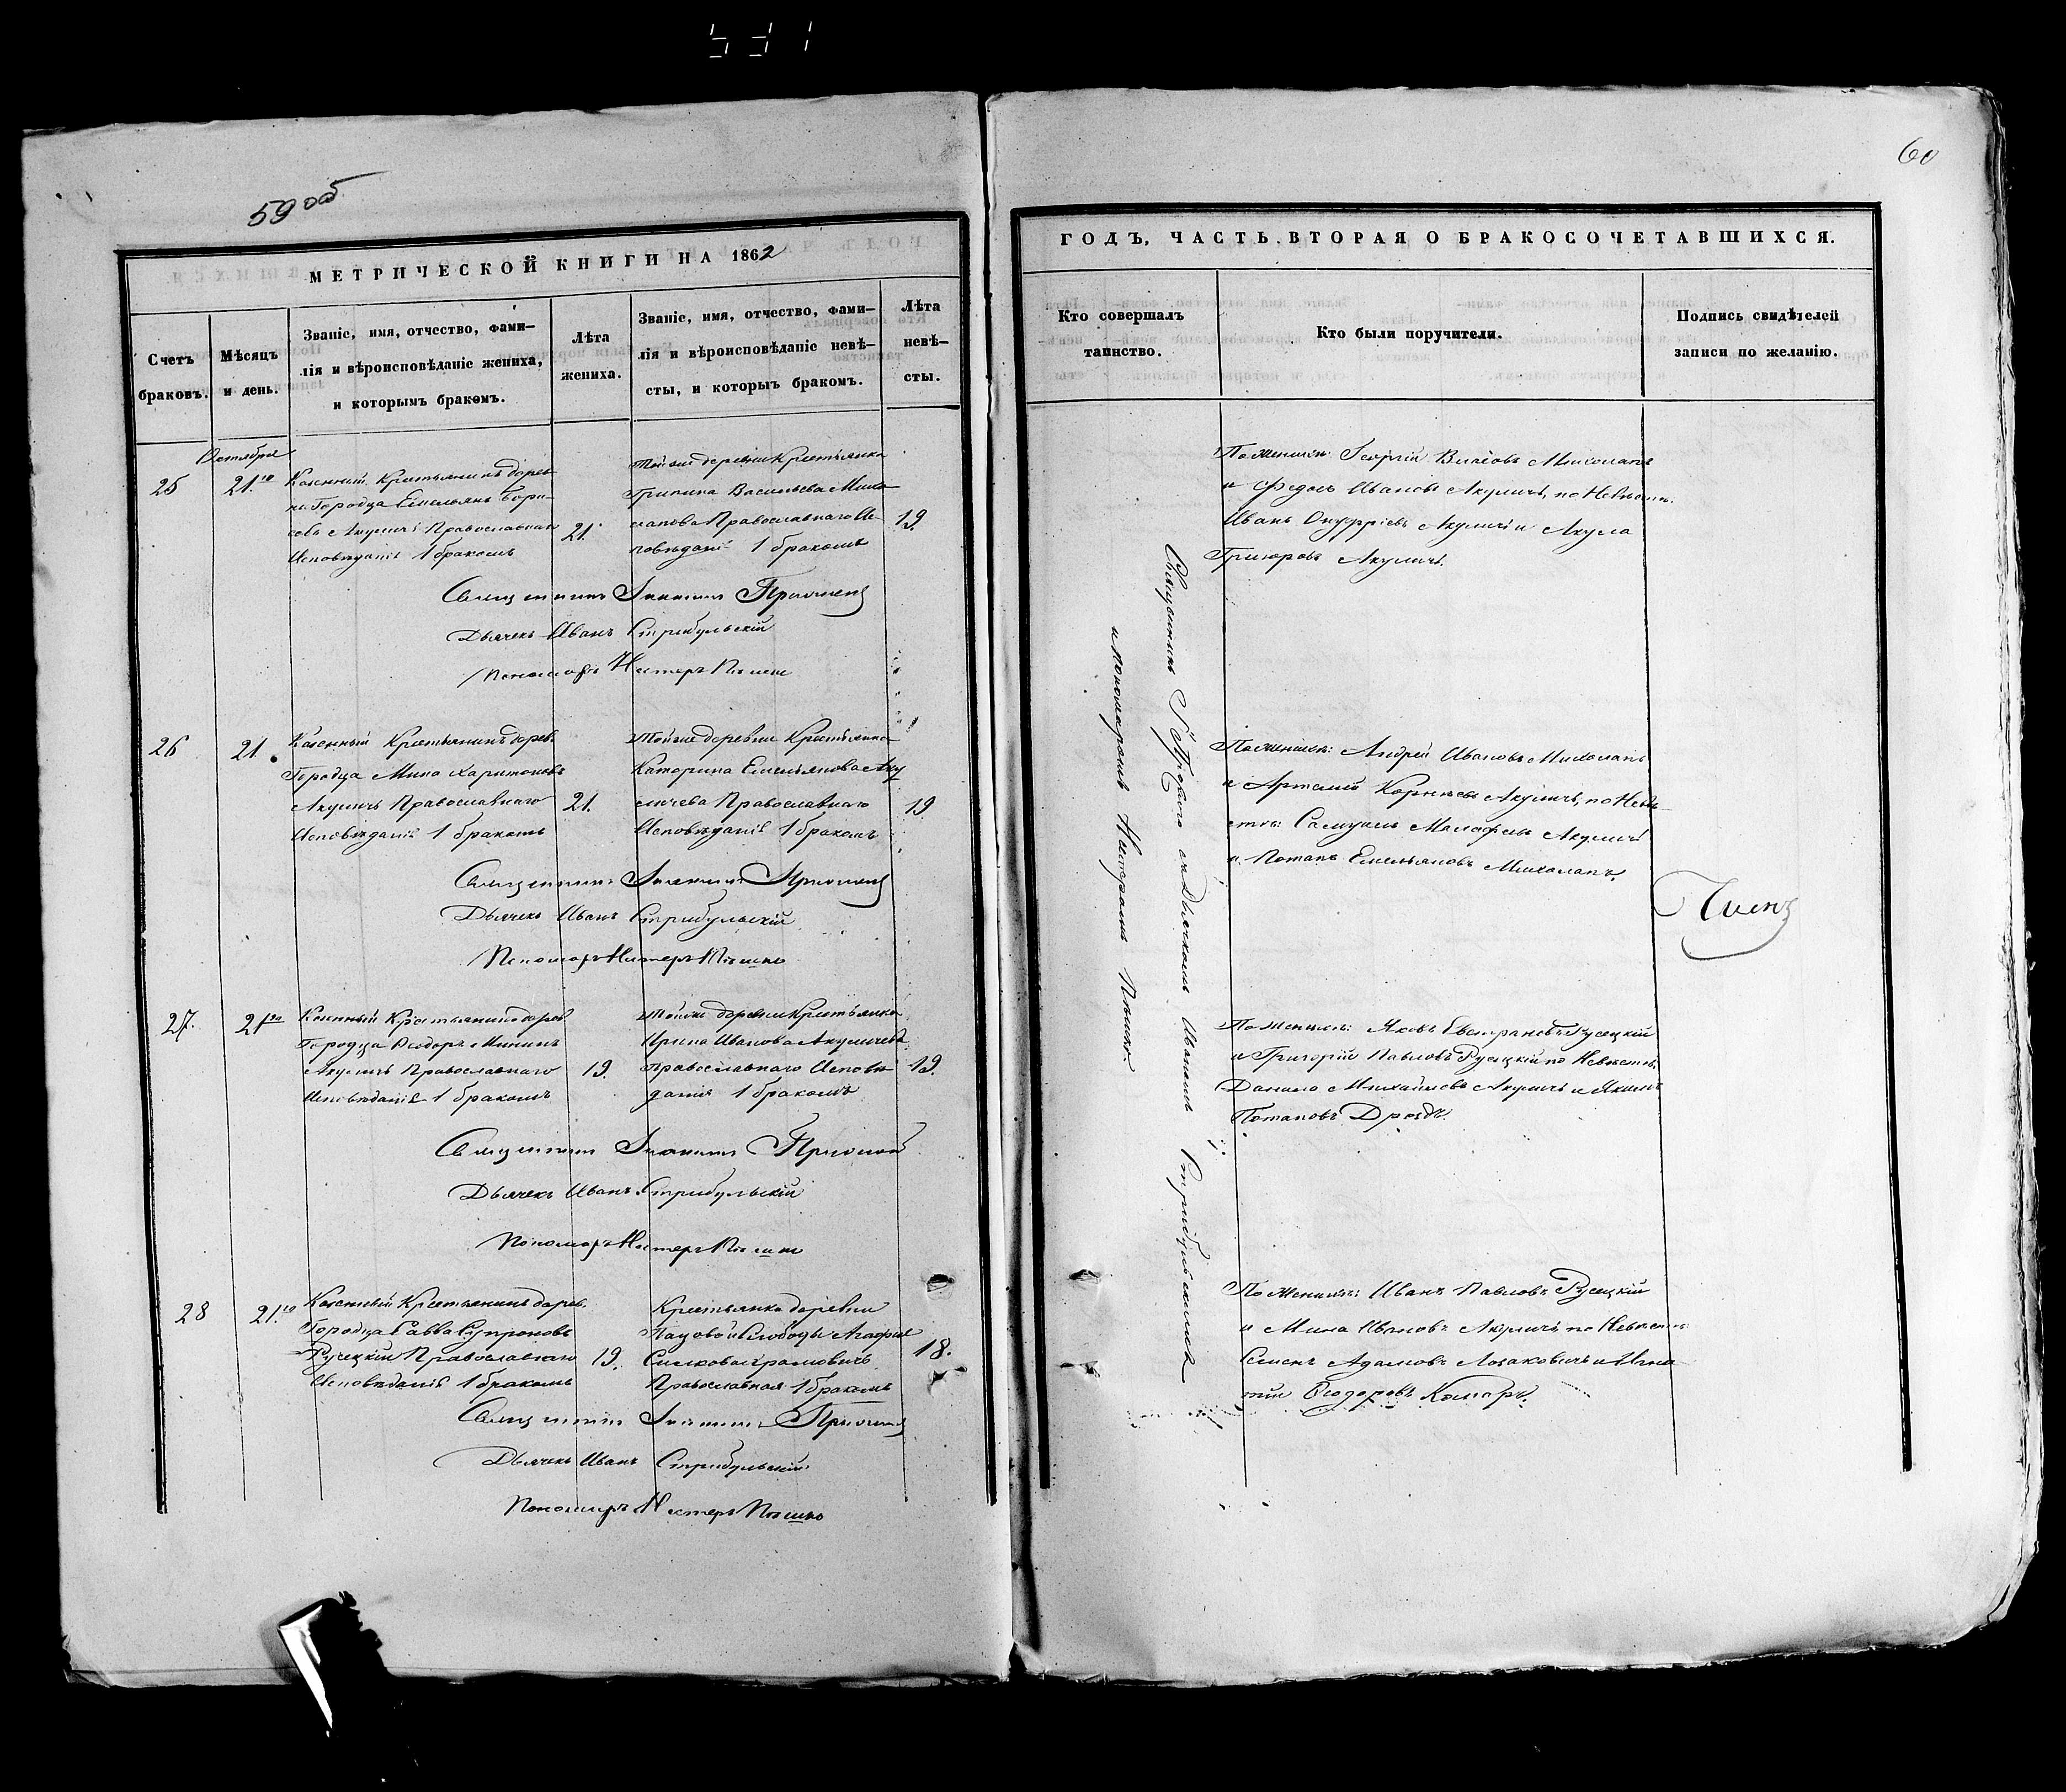 531
59 об
МЕТРИЧЕСКОЙ КНИГИ НА 1862
Счетъ браковъ.
Мѣсяцъ и день.
Званіе, имя, отчество, фами-
лія и вѣроисповѣданіе жениха,
и которымъ бракомъ.
Лѣта
жениха.
Званіе, имя, отчество, фами-
лія и вѣроисповѣданіе невѣ-
сты, и которыъ бракомъ.
Лѣта
невѣ-
сты.
Октября
25
21.го
Казенный Крестьянинъ дерев
ни Городца Емельянъ Бори-
совъ Акуличъ Православнаго
Исповѣданія 1 бракомъ
21.
Тойже деревни Крестьянка
Васильева Миха
лапова Православнаго Ис-
повѣданія 1 бракомъ
19
Священникъ
Дьячекъ Иванъ Стрибульскій
Пономарь Нестеръ Пѣшко
26
21
Казенный Крестьянинъ дерев.
Городца Мина Харитоновъ
Акуличъ Православнаго
Исповѣданія 1 бракомъ
21.
Тойже деревни Крестьянка
Катерина Емельянова Аку
личева Православнаго
Исповѣданія 1 бракомъ
19
Священникъ
Дьячекъ Иванъ Стрибульскій
Пономарь Нестеръ Пѣшко
27.
21го
Казенный Крестьянинъ дерев
Городца Ѳеодоръ Мининъ
Акуличъ Православнаго
Исповѣданія 1 бракомъ
19.
Тойже деревни Крестьянка
Ирина Иванова Акуличева
Православнаго Исповѣ
данія 1 бракомъ
19.
Священникъ
Дьячекъ Иванъ Стрибульскій
Пономарь Нестеръ Пѣшко
28
21.го
Казенный Крестьянинъ дерев.
Городца Савва Супроновъ
Русецкій Православнаго
Исповѣданія 1 бракомъ
19.
Крестьянка деревни
Слободы Агафія
Православная 1 бракомъ
18.
Священникъ
Дьячекъ Иванъ Стрибульскій
Пономарь Нестеръ Пѣшко
60
ГОДЪ, ЧАСТЬ ВТОРАЯ О БРАКОСОЧЕТАВШИХСЯ.
Кто совершалъ
таинство.
Кто были поручители.
Подпись свидѣтелей
записи по желанію.
Священникъ съ Дьячкомъ Иваномъ Стрибульскимъ
и пономаремъ Нестеромъ Пѣшко
По женихѣ: Георгій Власовъ Михолапъ
и Ѳедоръ Ивановъ Акуличъ, по Невѣстѣ:
Иванъ Онуфріевъ Акуличъ и Акула
Григоровъ Акуличъ.
По женихѣ: Андрей Ивановъ Михолапъ
и Артемій Корнѣевъ Акуличъ, по Невѣ-
стѣ: Самуилъ Малафеевъ Акуличъ
и Потапъ Емельяновъ Михолапъ.
По женихѣ: Яковъ Русецкій
и Григорій Павловъ Русецкій по Невѣстѣ:
Данило Михайловъ Акуличъ и Якимъ
Потаповъ Дроздъ.
По женихѣ: Иванъ Павловъ Русецкій
и Мина Ивановъ Акуличъ по Невѣстѣ:
Семенъ Адамовъ Лозаковичъ и Игна
тій Ѳеодоровъ Комаръ.